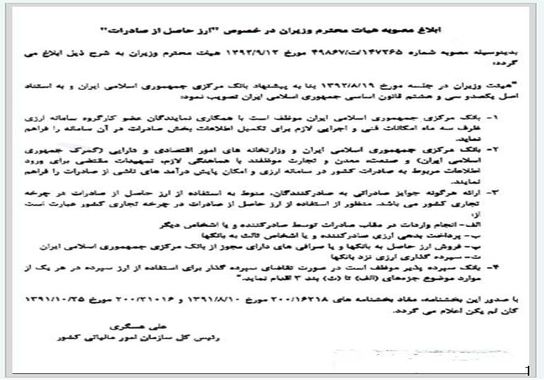 ابلاغ مصوبه هیات محترم وزیران در خصوص "ارز حاصل از صادرات"
بدینوسیله مصوبه شماره ۱۴۷۳۶۵/ت/۴۹۸۶۷ مورخ ۱۳۹۲/۹/۱۳ هیئت محترم وزیران به شرح ذیل ابلاغ می
گردد:
"هیئت وزیران در جلسه مورخ ۱۳۹۲/۸/۱۹ بنا به پیشنهاد بانک مرکزی جمهوری اسلامی ایران و به استناد
اصل یکصدو سی و هشتم قانون اساسی جمهوری اسلامی ایران تصویب نمود:
۱- بانک مرکزی جمهوری اسلامی ایران موظف است با همکاری نمایندگان عضو کارگروه سامانه ارزی
ظرف سه ماه امکانات فنی و اجرایی لازم برای تکمیل اطلاعات بخش صادرات در آن سامانه را فراهم
نماید.
۲- بانک مرکزی جمهوری اسلامی ایران و وزارتخانه های امور اقتصادی و دارایی (گمرک جمهوری
اسلامی ایران) و صنعت، معدن و تجارت موظفند با هماهنگی لازم، تمهیدات مقتضی برای ورود
اطلاعات مربوط به صادرات کشور در سامانه ارزی و امکان پایش درآمد های ناشی از صادرات را فراهم
نمایند.
۳- ارائه هرگونه جوایز صادراتی به صادرکنندگان، منوط به استفاده از ارز حاصل از صادرات در چرخه
تجاری کشور می باشد. منظور از استفاده از ارز حاصل از صادرات در چرخه تجاری کشور عبارت است
از:
الف- انجام واردات در مقابل صادرات توسط صادرکننده و یا اشخاص دیگر
ب- پرداخت بدهی ارزی صادرکننده و یا اشخاص ثالث به بانکها
پ- فروش ارز حاصل به بانکها و یا صرافی های دارای مجوز از بانک مرکزی جمهوری اسلامی ایران
ت- سپرده گذاری ارزی نزد بانکها
۴- بانک سپرده پذیر موظف است در صورت تقاضای سپرده گذار برای استفاده از ارز سپرده در هر یک از
موارد موضوع جزءهای (الف) تا (ت) بند ۳ اقدام نماید."
با صدور این بخشنامه، مفاد بخشنامه های ۲۰۰/۱۶۲۱۸ مورخ ۱۳۹۱/۸/۱۰ و ۲۰۰/۲۱۰۱۶ مورخ ۱۳۹۱/۱۰/۲۵
کان لم یکن اعلام می گردد.
علی عسگری
رئیس کل سازمان امور مالیاتی کشور
1